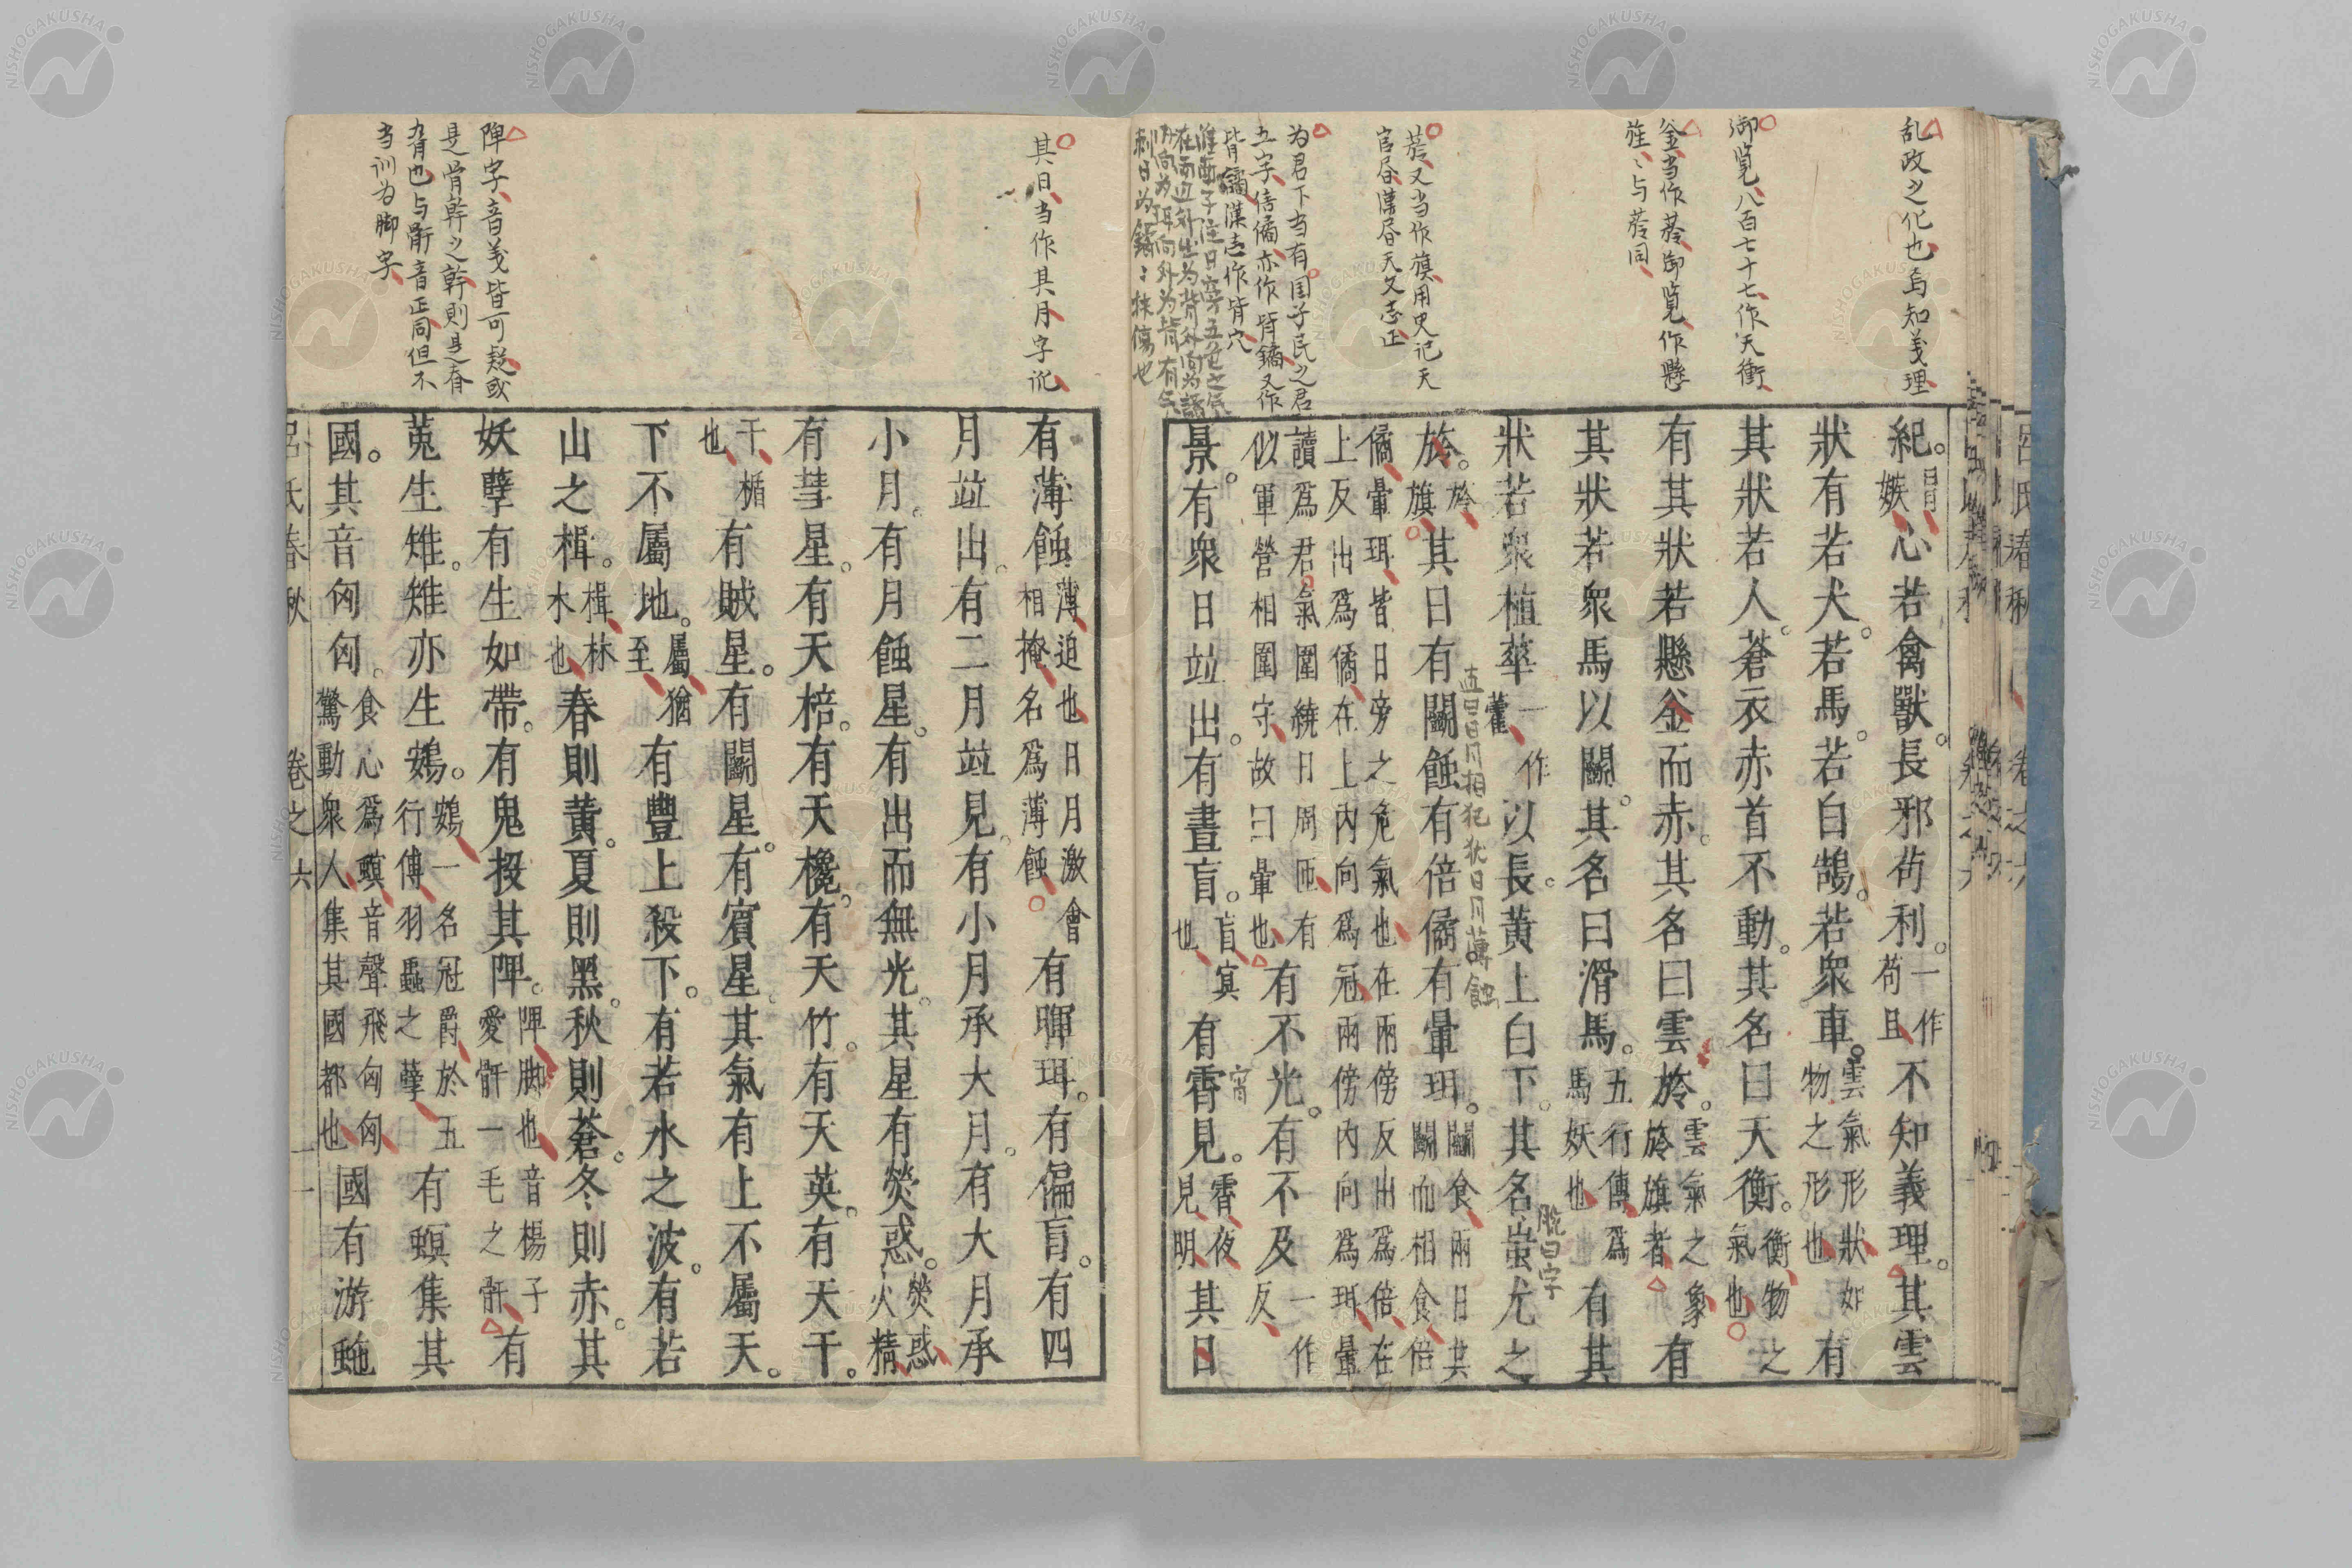 乱政之化也烏知義理
御覧八百七十七作天衝
釜当作菸御覧作懸
旌〻与菸同
菸又当作旗用史记天
官昼漢昼天文志正
为君下当有囯字民之君
五字倍僪亦作背鐍又作
背鐍漢志作背穴
淮南子注日旁五色之气
在両辺外出为背外向为譎
内向为珥向外为背有气
刺日为鐍〻抉傷也
紀。冒嫉心若禽獸。長邪苟利。一作苟且不知義理。其雲
狀有若犬。若馬。若白鵠。若衆車。雲氣形狀如物之形也有
其狀若人。蒼衣赤首不動。其名曰天衡。衡物之氣也
有其狀若懸釜而赤。其名曰雲旍。雲氣之象旍旗者有
其狀若衆馬以鬭。其名曰滑馬。五行傳爲馬妖也有其
狀若衆植華一作雚以長。黄上白下。其名蚩尤之
脱曰字
旍。旍旗其日有鬭蝕有倍僪有暈珥。鬭食兩日共鬭而相食倍
直曰日月相犯状日月薄蝕
僪暈珥皆日旁之危氣也在兩傍反出爲倍在
上反出爲僪在上内向爲冠兩傍内向爲珥暈
讀爲君氣圍繞日周匝有似軍營相圍守故曰暈也有不光。有不及一作反
景。有衆日竝出。有晝盲。盲㝠也有霄見。霄夜見明其日
宵
其日当作其月字訛
字音義皆可疑或
是骨幹之幹則是脊
膂也与骭音正同但不
当训为脚字
有薄蝕薄迫也日月激會相掩名爲薄蝕有暉珥。有偏盲。有四
月竝出。有二月竝見。有小月承大月。有大月承
小月。有月蝕星。有出而無光。其星有熒惑。熒惑火精
有彗星。有天棓。有天欃。有天竹。有天英。有天干。
干楯也有賊星。有鬭星。有賓星。其氣有上不屬天。
下不屬地。屬猶至有豐上殺下。有若水之波。有若
山之楫。楫林木也春則黄。夏則黑。秋則蒼。冬則赤。其
妖孽有生如帶。有鬼投其䏶。䏶脚也音楊子愛骭一毛之骭有
菟生雉。雉亦生鴳。鴳一名冠爵於五行傳羽蟲之孽有螟集其
國。其音匈匈。食心爲螟音聲飛匈匈驚動衆人集其國都也國有游虵
呂氏春秋 卷之六 十一